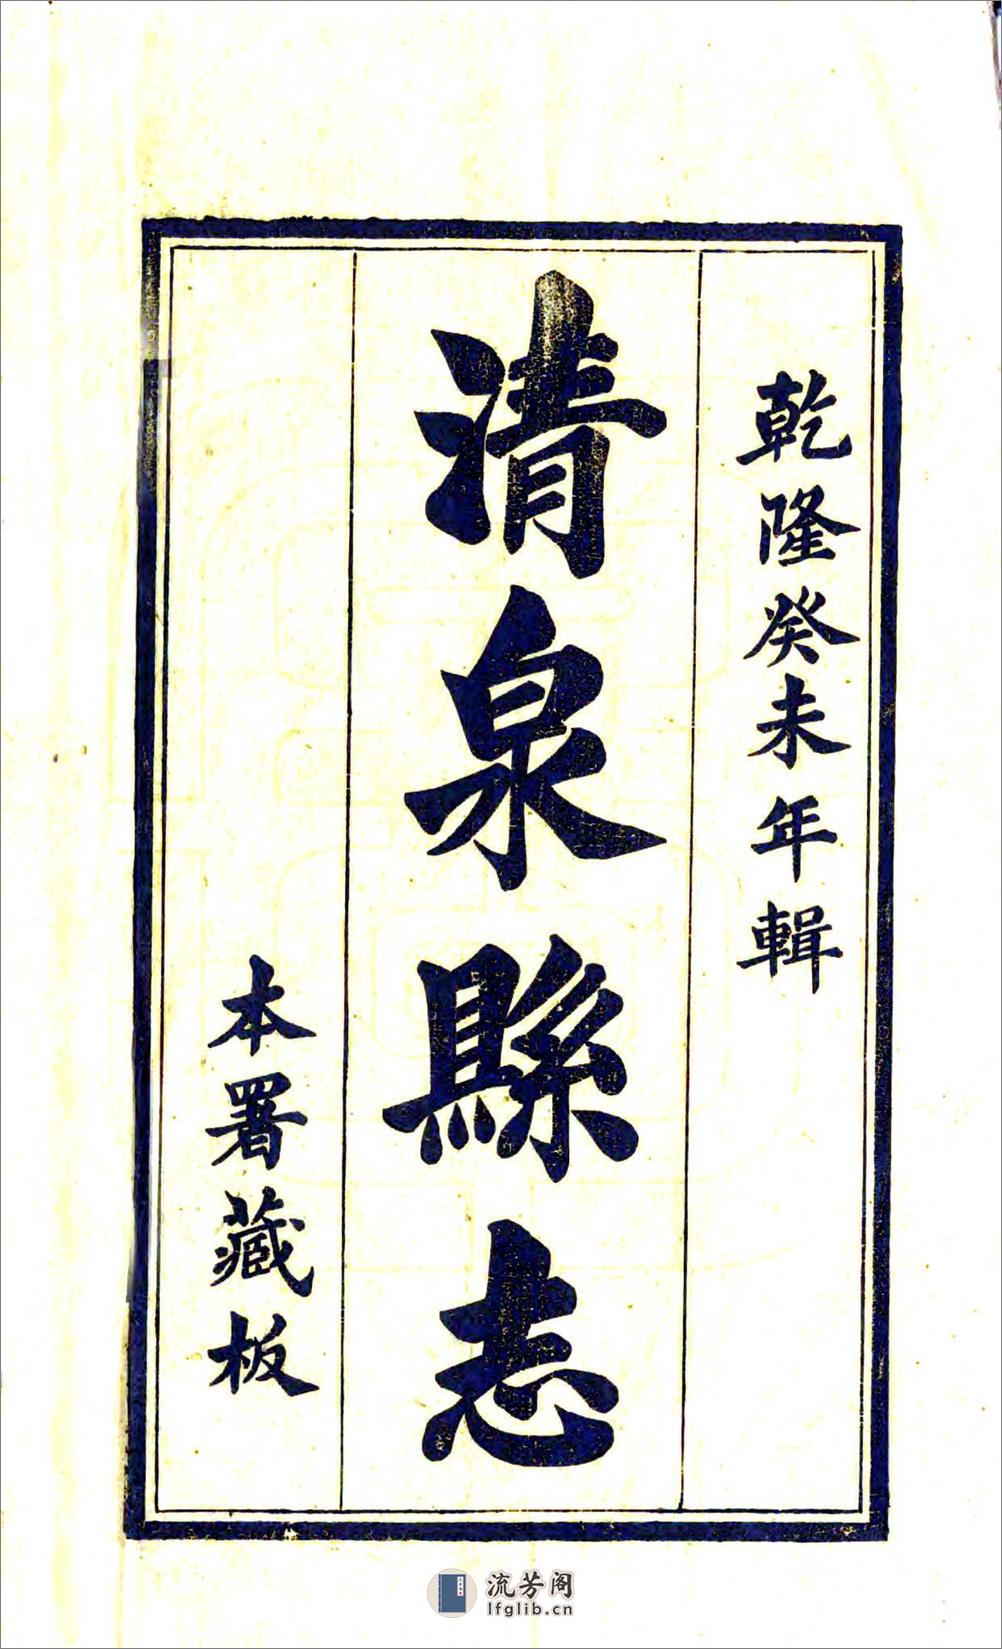 乾隆癸未年輯
清泉縣志
本署藏板
流芳阁
lfglib.cn